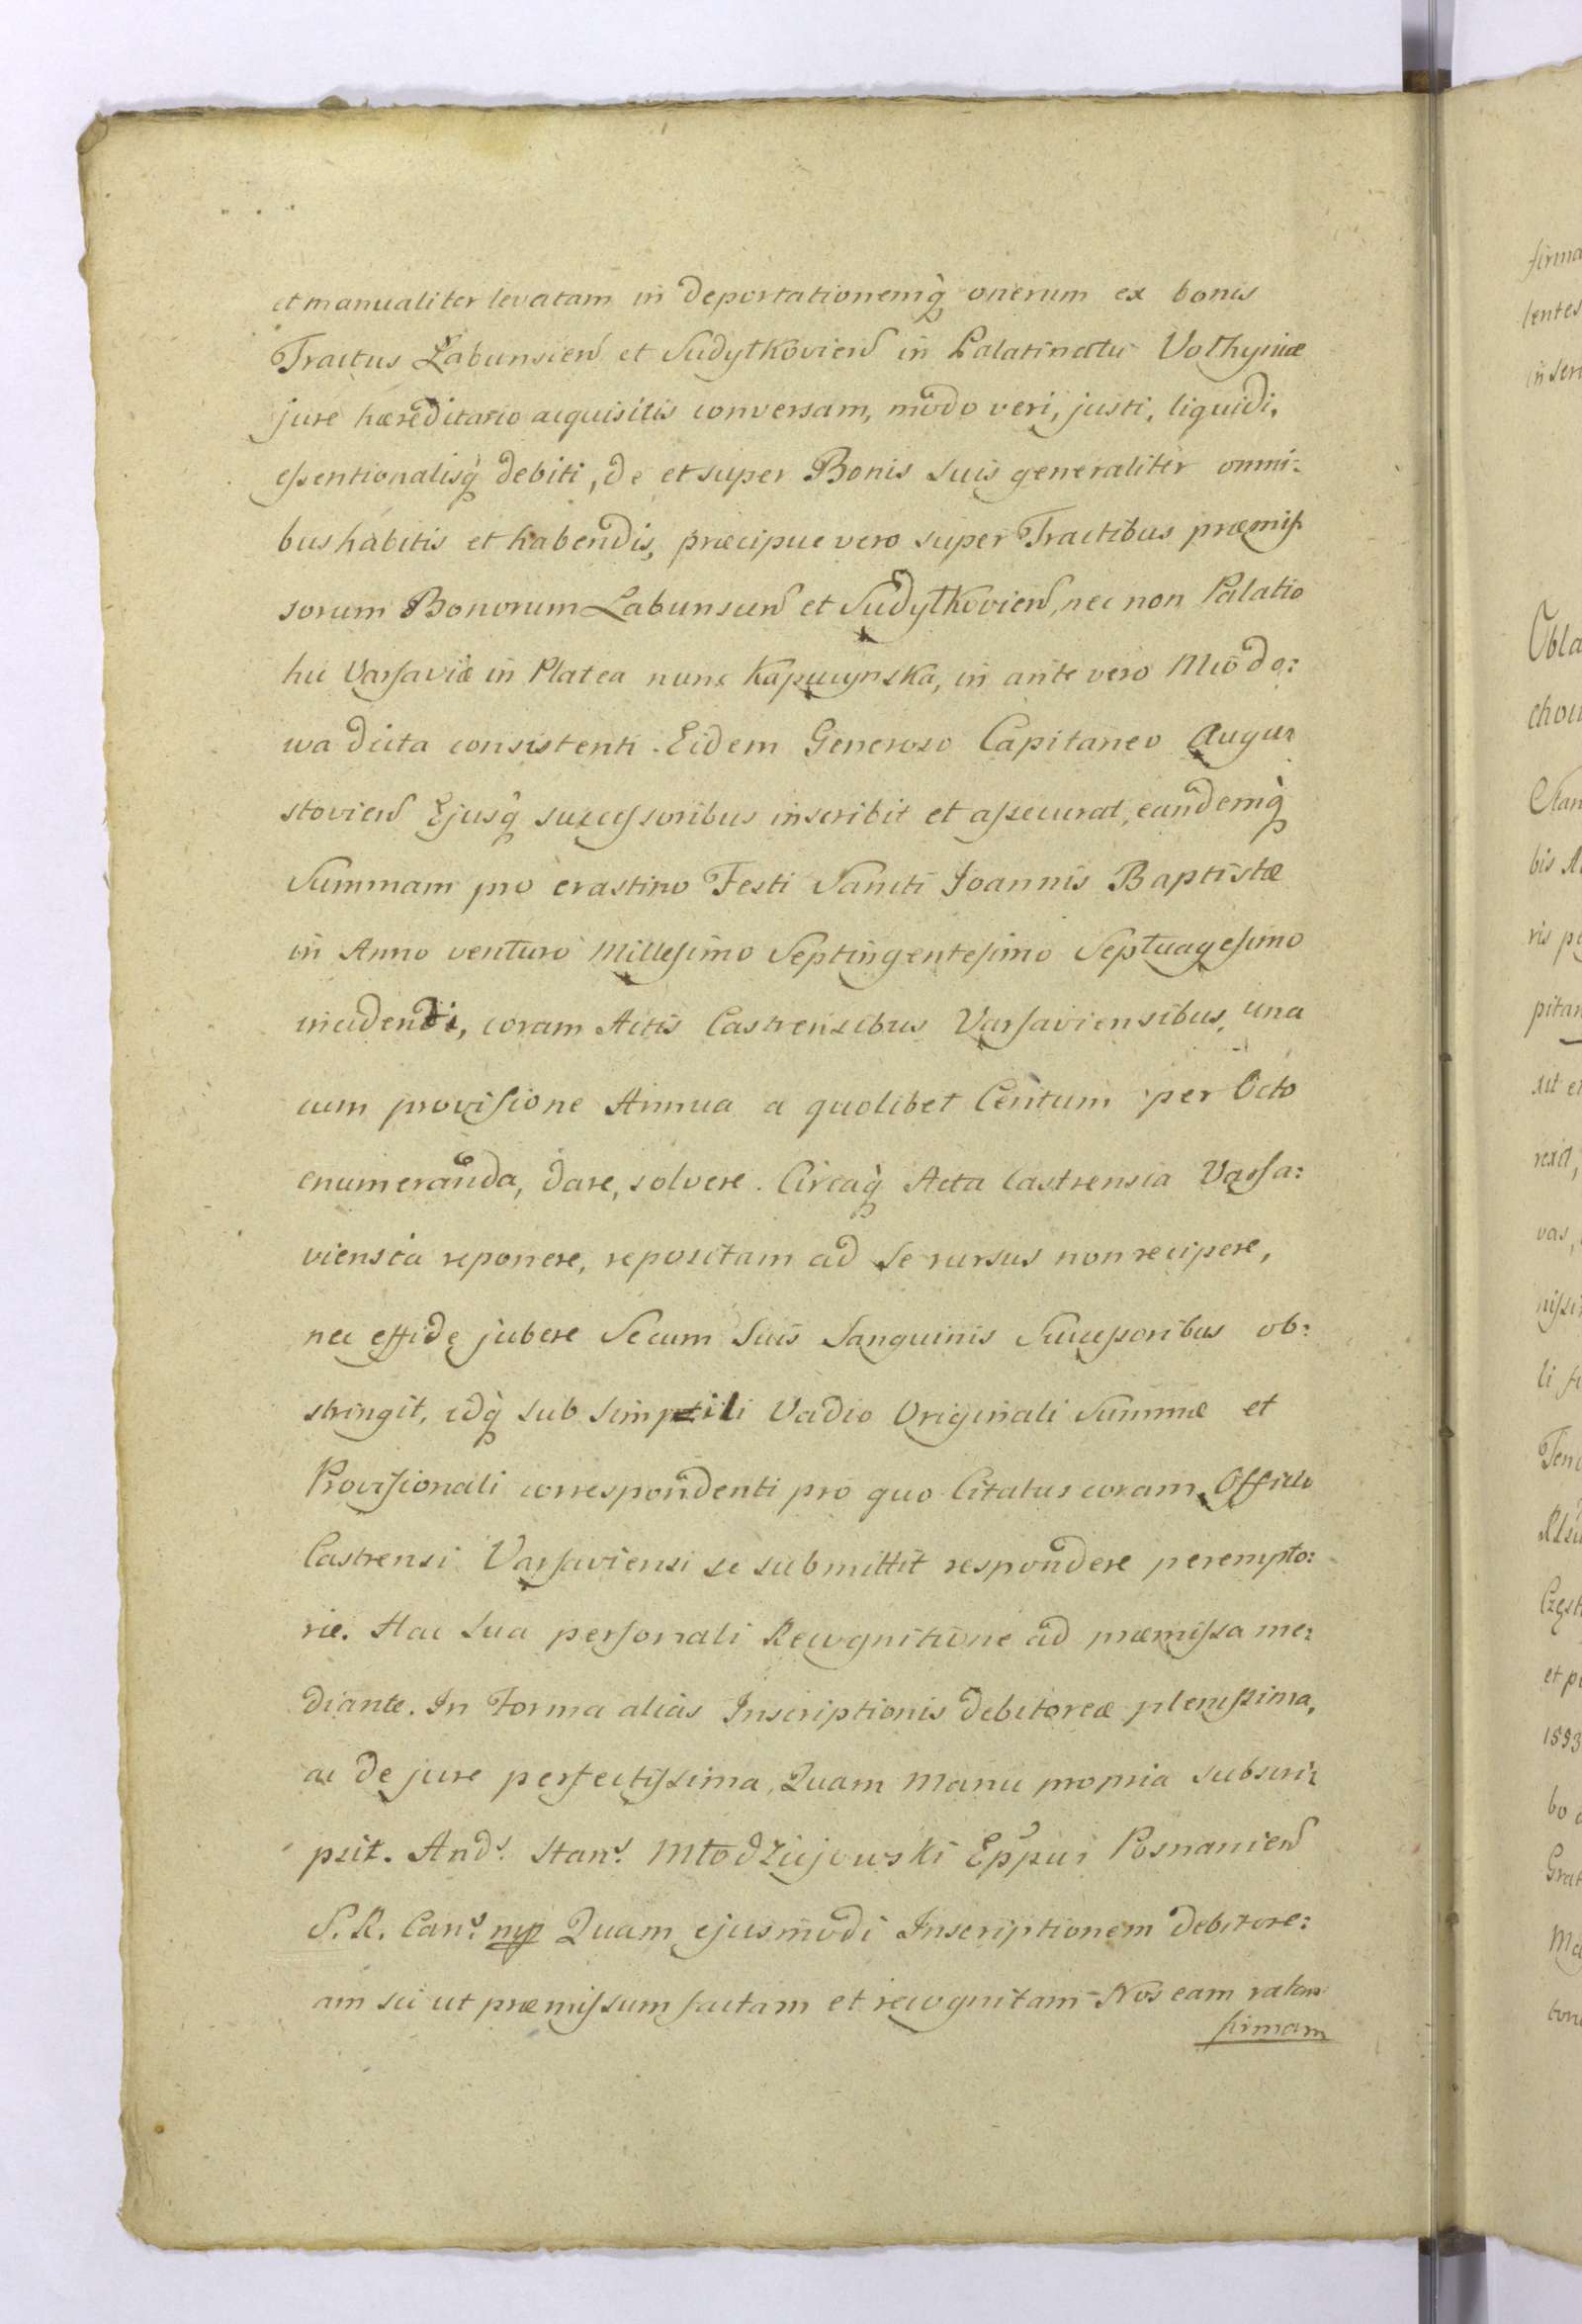 et manualiter levatam in deportationemq̀ onerum ex bonis
Tractus Łabunsien et Sudyłkovien in Palatinatu Volhyniæ
jure hæreditario acquisitis conversam, modo veri, justi, liquidi,
eſsentionalisq̀ debiti, de et super Bonis suis generaliter omni:
bus habitis et habendis, præcipue vero super Tractibus præmiſ
sorum Bonorum Labunsien et Sudyłkovien, nec non Palatio
hic Varſaviæ in Platea nunc Kapucynska, in ante vero Miodo:
wa dicta consistenti. Eidem Generoso Capitaneo Augu:
stovien Ejusq̀ succeſsoribus inscribit et aſsecurat, eandemq̀
Summam pro crastino Festi Sancti Joannis Baptistæ
in Anno venturo Milleſimo Septingenteſimo Septuageſimo
incidendi, coram Actis Castrensibus Varſaviensibus, una
cum proviſione Annua a quolibet Centum per Octo
enumeranda, dare, solvere. Circaq̀ Acta Castrensia Varſa:
viensia reponere, repositam ad se rursus non recipere,
nec effide jubere Secum Suis Sanguinis Succeſsoribus ob:
stringit, idq̀ sub simptili Vadio Originali Summæ et
Proviſionali correspondenti pro quo Citatus coram Officio
Castrensi Varſaviensi se submittit respondere perempto:
rie. Hac Sua perſonali Recognitione ad præmiſsa me:
diante. In Forma alias Inscriptionis debitoreæ pleniſsima,
ac de jure perfectiſsima, Quam Manu propria subscri:
psit. Andˢ. Stanˢ. Młodziejowski Eppus Posnanien
S. R. Canˢ. mp Quam ejusmodi Inscriptionem debitore:
am sic ut præmiſsum factam et recognitam Nos eam ratam
firmam